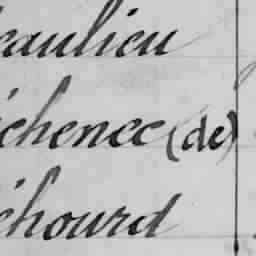 eaulieu
échenec (de)
échourd